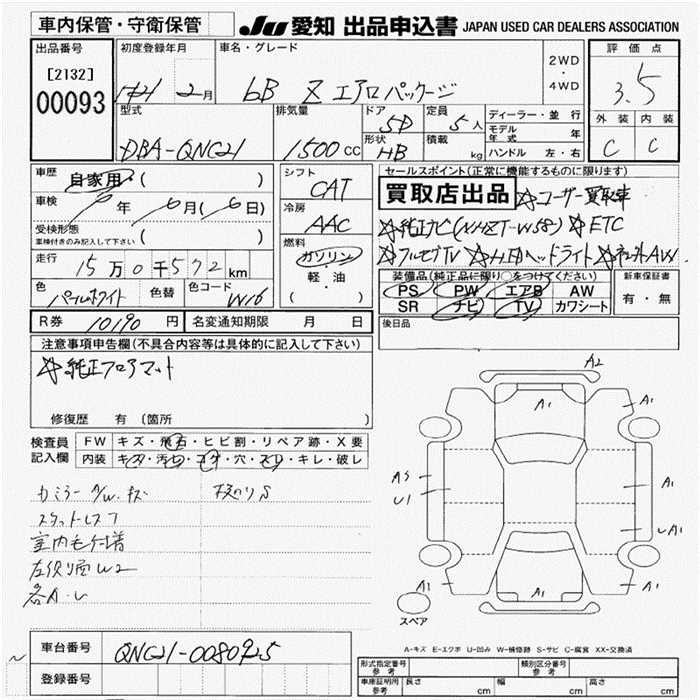 車内保管・守衛保管
JU 愛知 出品申込書 JAPAN USED CAR DEALERS ASSOCIATION
出品番号 初度登録年月 車名・グレード 2WD・4WD 評価点
[2132]
00093
H21年 2月 bB Z エアロパッケージ 3.5
型式 排気量 ドア 定員 ディーラー・並行 外装 内装
DBA-QNC21 1500cc 5D 5人 モデル年式 年 C C
形状 積載 ハンドル 左・右
HB kg
車歴 自家用・( ) シフト セールスポイント(正常に機能するものに限ります)
CAT 買取店出品 ☆ユーザー買取車
車検 年 6月(6日) 冷房 AAC ☆純正ナビ(NHZT-W58) ☆ETC
受検形態
車検付きのみ記入して下さい ( ) 燃料 ☆フルセグTV ☆HIDヘッドライト
走行 15万0千572km ガソリン・軽・油 ( ) 装備品(純正品に限り○をつけてください) 新車保証書
PS PW エアB AW 有・無
色 パールホワイト 色替 色コード W16 SR ナビ TV カワシート
R券 10190円 名変通知期限 月 日 後日品
注意事項申告欄(不具合内容等は具体的に記入して下さい)
☆純正フロアマット
修復歴 有 (箇所 )
検査員記入欄 FW キズ・飛石・ヒビ割・リペア跡・X要
内装 キズ・汚れ・コゲ・穴・スレ・キレ・破レ
スタットレス7
室内毛付着
各A・U
A2
A1 A1
A1
A3
U1
A1
A1 A1 A1
スペア
A-キズ E-エクボ U-凹み W-補修跡 S-サビ C-腐食 XX-交換済
車台番号 QNC21-0080925
登録番号
形式指定番号 参考 類別区分番号 参考
車庫証明用 参考 長さ cm 幅 cm 高さ cm